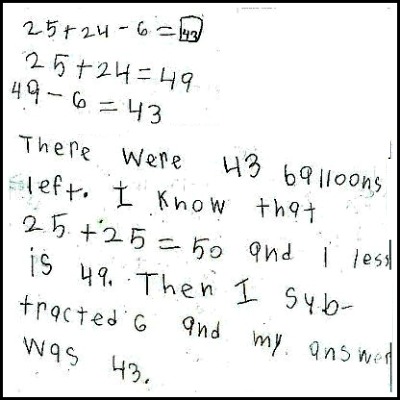 25+24-6=43
25+24=49
49-6=43
There were 43 balloons
left. I know that
25+25=50 and 1 less
is 49. Then I sub-
tracted 6 and my answer
was 43.